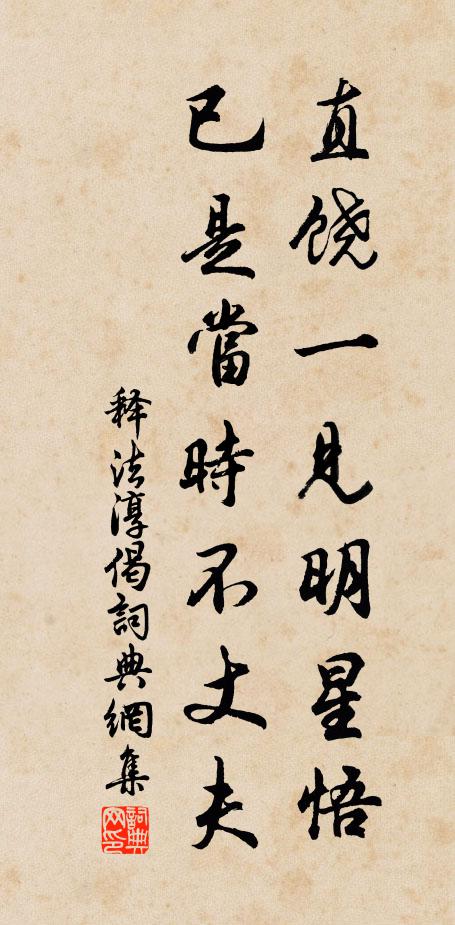 直饶一见明星悟
已是當時不丈夫
释法淳偈詞典網集
詞典网印